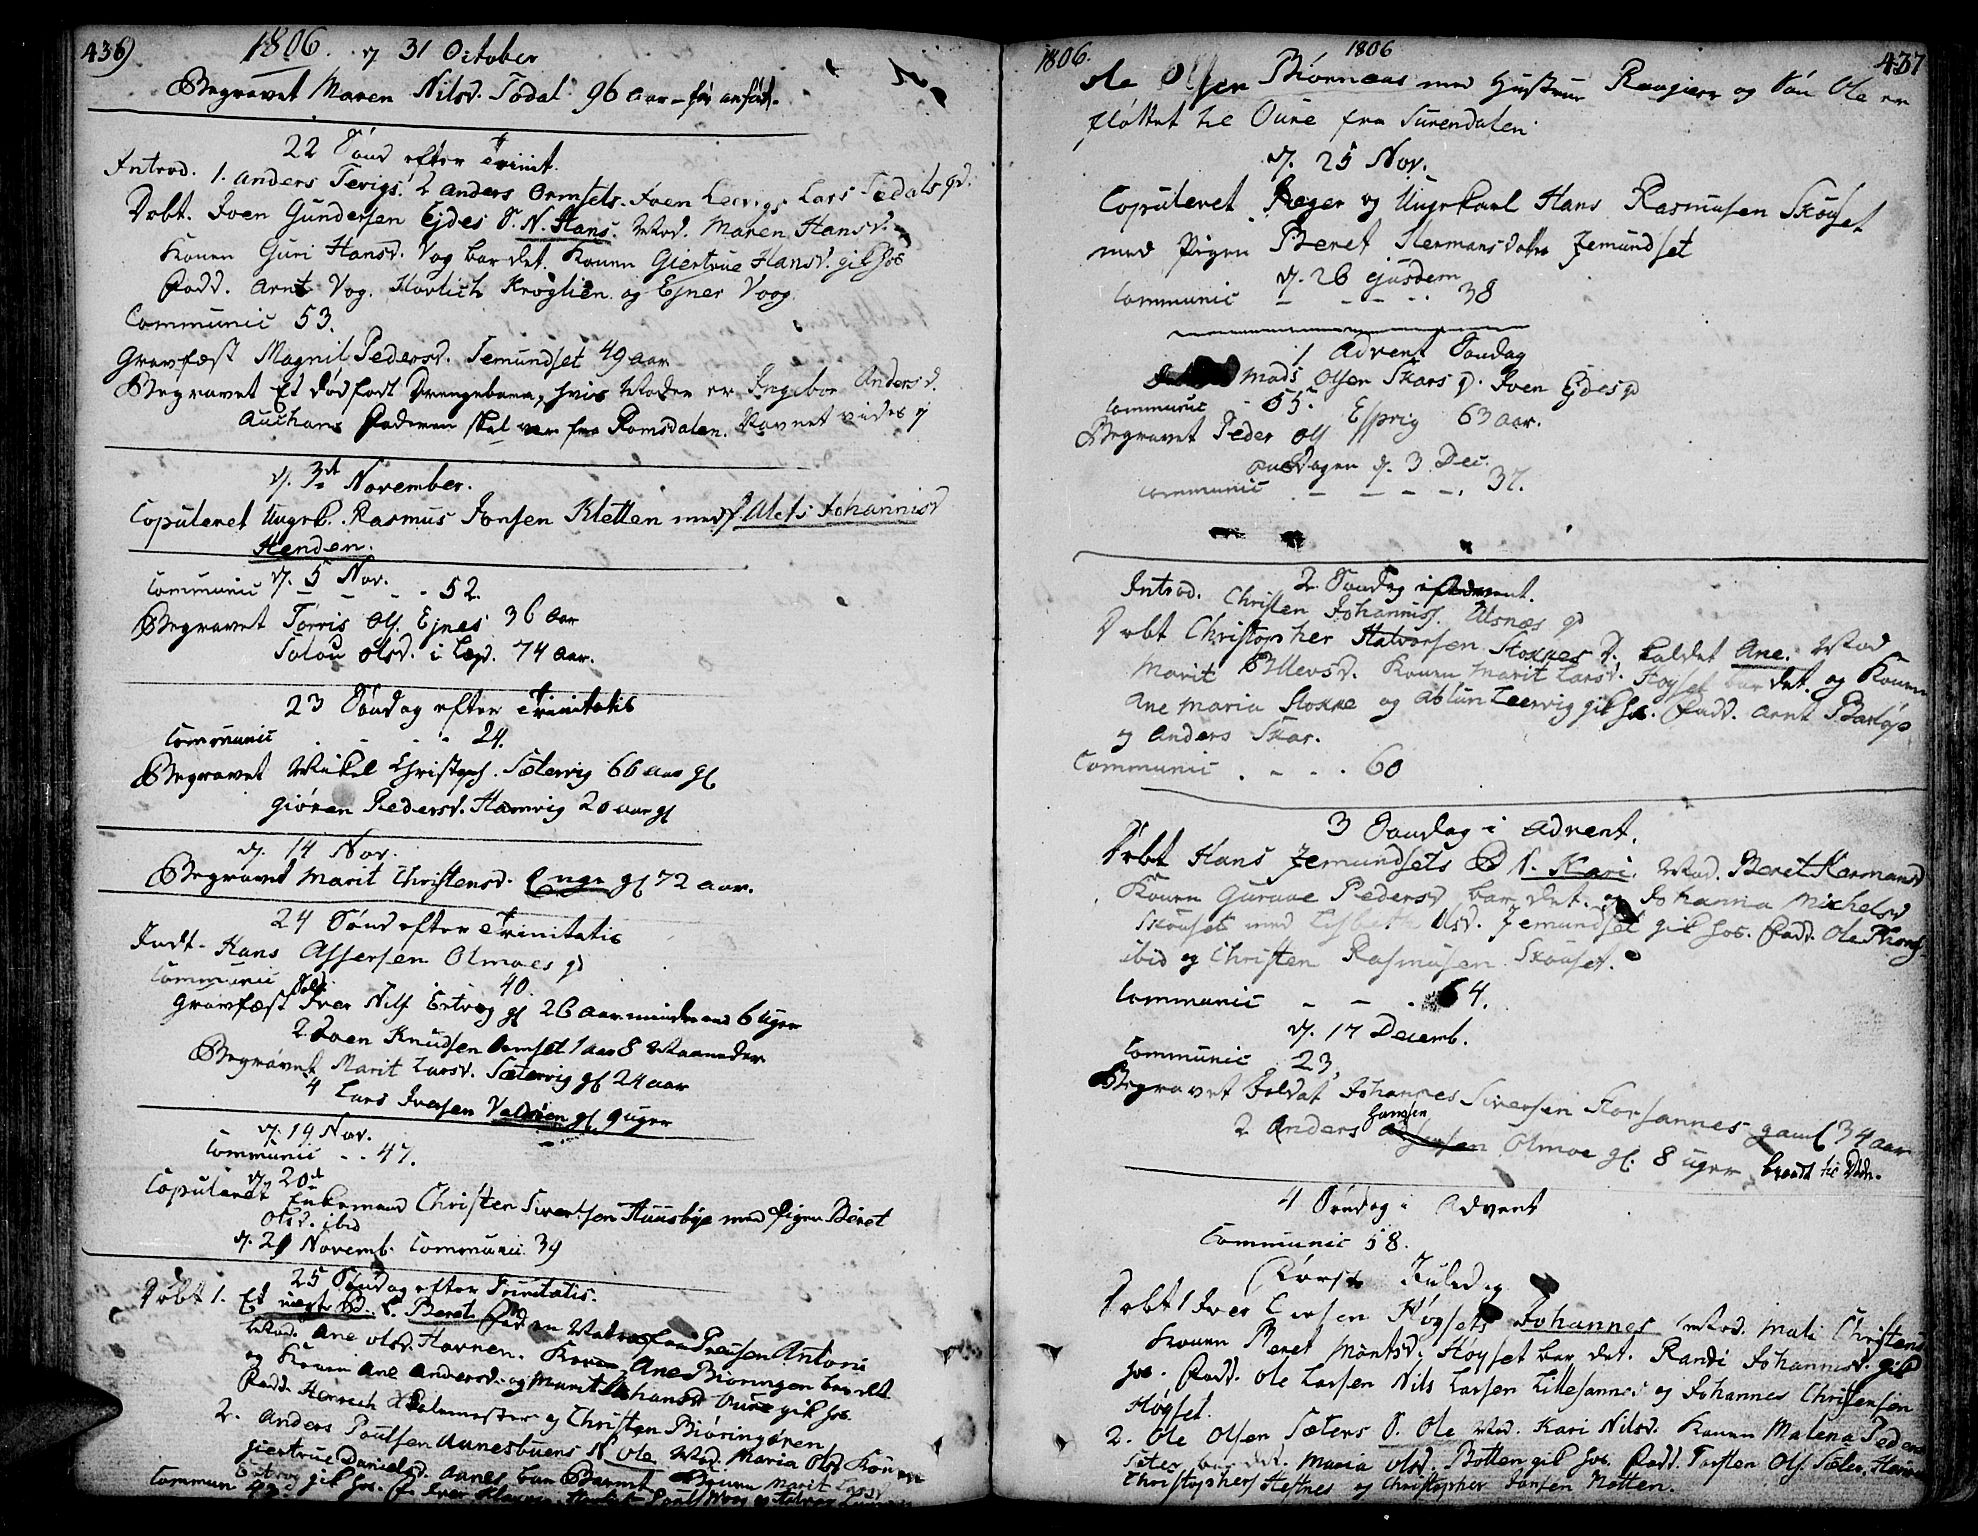 436)
1806. d. 31 October
Begravet Maren Nilsd. Todal 96 Aar - før anført.
22 Sönd efter Trinit.
Introd. 1. Anders Tevigs. 2 Anders Ormsets. Iven Leervigs Lars Tedals qd.
Döbt. Iven Gundersen Ejdes S. N. Hans. Mod. Maren Hansd.
Konen Guri Hansd. Vog bar det. Konen Giertrue Hansd. gik hos
Fadd. Arnt Vog. Kløglien og Ejner Voog.
Communic 53.
Gravfæst Magnil Pedersd. Jemundset 49 aar
Begravet Et dödfödt Drengebarn, hvis Moder er Ingebor Andersd.
Faderen skal være fra Romsdalen. Navnet vides ej
d. 3d November.
Copuleret Ungk. Rasmus Jonsen Kletten med P. Alets Johannisd
Henden.
d. 5 Nov.
Communic - - - - 52.
Begravet Torris Ols. Ejnes 36 Aar
Solou Olsd. i Lægd. 74 Aar.
23 Söndag efter Trinitatis
Communic . . . . 24.
Begravet Mikel Christoph. Sætervig 66 aar gl
Giören Pedersd. Hamvig 20 aar gl
d. 14 Nov.
Begravet Marit Christensd. Enge gl 72 aar.
24 Sönd efter Trinitatis
Indt. Hans Assersen Olmoes qd
Communic 40.
Gravfæst Sold. Iver Nils Ertvog gl 26 Aar mindre end 6 Uger
2. Iven Knudsen Ormset 1 aar 8 Maaneder
Begravet Marit Larsd. Sætervig gl 24 aar
4 Lars Iversen Valsöen gl 9 uger
d. 19 Nov.
Communic . . 47.
d. 20d
Copuleret Enkemand Christen Sivertsen Huusbye med Pigen Beret
Olsd. ibid
d. 21 Novemb. Communic 39
25 Söndag efter Trinitatis.
Döbt 1. Et uægte B. k. Beret Fad en Matros fra Preusen Antoni
Mod. Ane Olsd. Havnen. Konen Ane Biöringen bar det
og Konen Ane Andersd. og Marit Johansd Oure gik hos.
Fadd. Henrich Skolemester og Christen Biöringören
2. Anders Poulsen Aunesbuens N. Ole Mod. Maria Olsd Konen
Giertrue Danielsd. Aunes bar Barnet Marit Larsd
Ertvog gik hos.
Commun 42.
1806.
1806
437
Ole Olsen Biörnaas med Hustrue Rangier og Sön Ole er
flöttet til Oure fra Surendalen
d. 25 Nov.
Copuleret Jæger og Ungekarl Hans Rasmusen Skouset
med Pigen Beret Hermansdatter Jemundset
d. 26 ejusdem
Communic - - - . . 38
1 Advent Söndag
Mads Olsen Skars qd. Iven Ejdes qd
Communic - 55.
Begravet Peder Ols Espvig 63 aar.
Onsdagen d. 3 Dec.
Communic . - - - - . 37.
2. Söndag i Advent.
Introd. Christen Johanniss. Ulsnæs qd
Döbt Christopher Halvorsen Stokkes D. kaldet Ane. Mod
Marit Ellevsd. Konen Marit Larsd. Foyset bar det. og Konen
Ane Maria Stokke og Ablun Leervig gik hos. Fadd. Arnt
og Anders Skar.
Communic . - . . 60
3 Söndag i Advent.
Döbt Hans Jemundsets D N. Kari. Mod. Beret Hermansd
Konen Guruue Pedersd bar det. og Johanna Michelsd
Skouset med Lisbeth Olsd. Jemundset gik hos. Fadd. Ole
ibid og Christen Rasmusen Skouset.
Communic - - . 64.
d. 17 Decemb.
Communic 23.
Begravet Soldat Johannes Siversen Korsannes gaml 34 aar
2. Anders Hansen Olmoe gl. 8 uger bragt til Dode.
4 Söndag i Advent
Communic 58.
Förste Juledag
Döbt 1 Iver Larsen Höysets Johannes Mod. Mali Christens
Konen Beret Montsd. Höyset bar det. Randi Johannisd. gik
hos. Fadd. Ole Larsen Nils Larsen Lillesannes og Johannes Christensen
Höyset.
2. Ole Olsen Sæters S. Ole Mod. Kari Nilsd. Konen Malena Peders
Sæter bar det. Maria Olsd. Botten gik hos. Fadd. Torsten Ols Sæter,
Christophers Hestnes og Christopher Jonsen Notten.